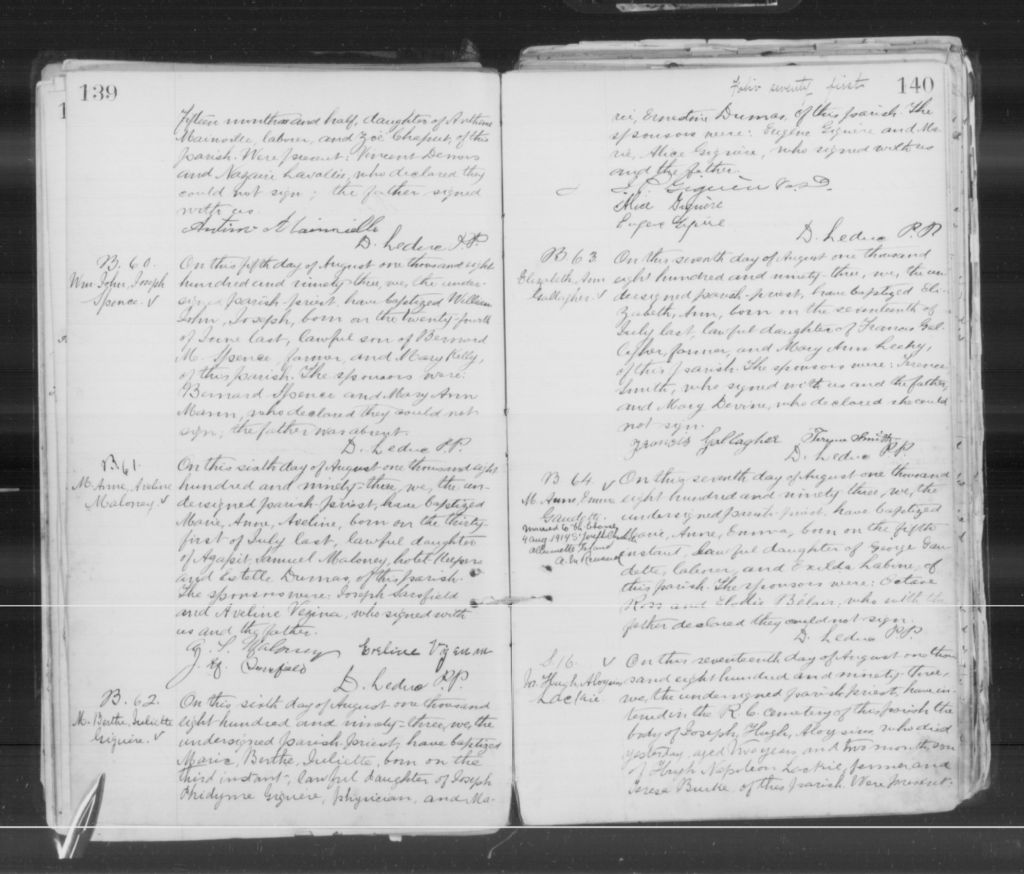 139
fifteen months and half, daughter of Anthime
Mainville, laborer, and Zoé Chaput, of this
parish. Were present: Vincent Demers
and Nazaire Lavallée, who declared they
could not sign; the father signed
with us.
Antime Mainville
D. Leduc P.P.
B. 60.
Wm. John, Joseph
Spence. v
On this fifth day of August one thousand eight
hundred and ninety-three, we, the under-
signed parish-priest, have baptized William
John, Joseph, born on the twenty-fourth
of June last, lawful son of Bernard
M. Spence, farmer, and Mary Kelly,
of this parish. The sponsors were:
Bernard Spence and Mary Ann
Mann, who declared they could not
sign; the father was absent.
D. Leduc P.P.
B. 61.
M. Anne, Aveline
Maloney. v
On this sixth day of August one thousand eight
hundred and ninety-three, we, the un-
dersigned parish-priest, have baptized
Marie, Anne, Aveline, born on the thirty-
first of July last, lawful daughter
of Agapit Samuel Maloney, hotel-keeper
and Estelle Dumas, of this parish.
The sponsors were: Joseph Sarsfield
and Aveline Vezina, who signed with
us and the father.
A. S. Maloney
Eveline Vezina
J. Sarsfield
D. Leduc P.P.
B. 62.
M. Berthe, Juliette
Giguère. v
On this sixth day of August one thousand
eight hundred and ninety-three, we, the
undersigned parish priest, have baptized
Marie, Berthe, Juliette, born on the
third instant, lawful daughter of Joseph
Phidyme Giguère, physician, and Ma-
Folio seventy first
140
rie, Ernestine Dumas, of this parish. The
sponsors were: Eugène Giguère and Ma-
rie, Alice Giguère, who signed with us
and the father.
J. P. Giguère M.D.
Alice Giguère
D. Leduc P.P.
B. 63
Elizabeth, Ann
Gallagher. v
On this seventh day of August one thousand
eight hundred and ninety-three, we, the un-
dersigned parish-priest, have baptized Eli-
zabeth, Ann, born on the seventeenth of
July last, lawful daughter of Francis Gal-
lagher, farmer, and Mary Ann Leahy,
of this parish. The sponsors were: Terence
Smith, who signed with us and the father,
and Mary Devine, who declared she could
not sign.
Francis Gallagher
Terence Smith
D. Leduc P.P.
B 64. v
M. Anne, Emma
Gaudette.
married to
4 aug 1914 St Joseph
On this seventh day of August one thousand
eight hundred and ninety three, we, the
undersigned parish-priest, have baptized
Marie, Anne, Emma, born on the fifth
instant, lawful daughter of George Gau-
dette, laborer, and Exilda Labine, of
this parish. The sponsors were: Octave
Ross and Elodie Bélair, who with the
father declared they could not sign.
D. Leduc P.P.
S. 16. v
Jos. Hugh, Aloysius
Lackie.
On this seventeenth day of August one thou-
sand eight hundred and ninety-three,
we, the undersigned parish priest, have in-
terred in the R. C. cemetery of this parish the
body of Joseph, Hugh, Aloysius, who died
yesterday, aged two years and two months, son
of Hugh Napoleon Lackie, farmer and
Teresa Burke, of this parish. Were present: